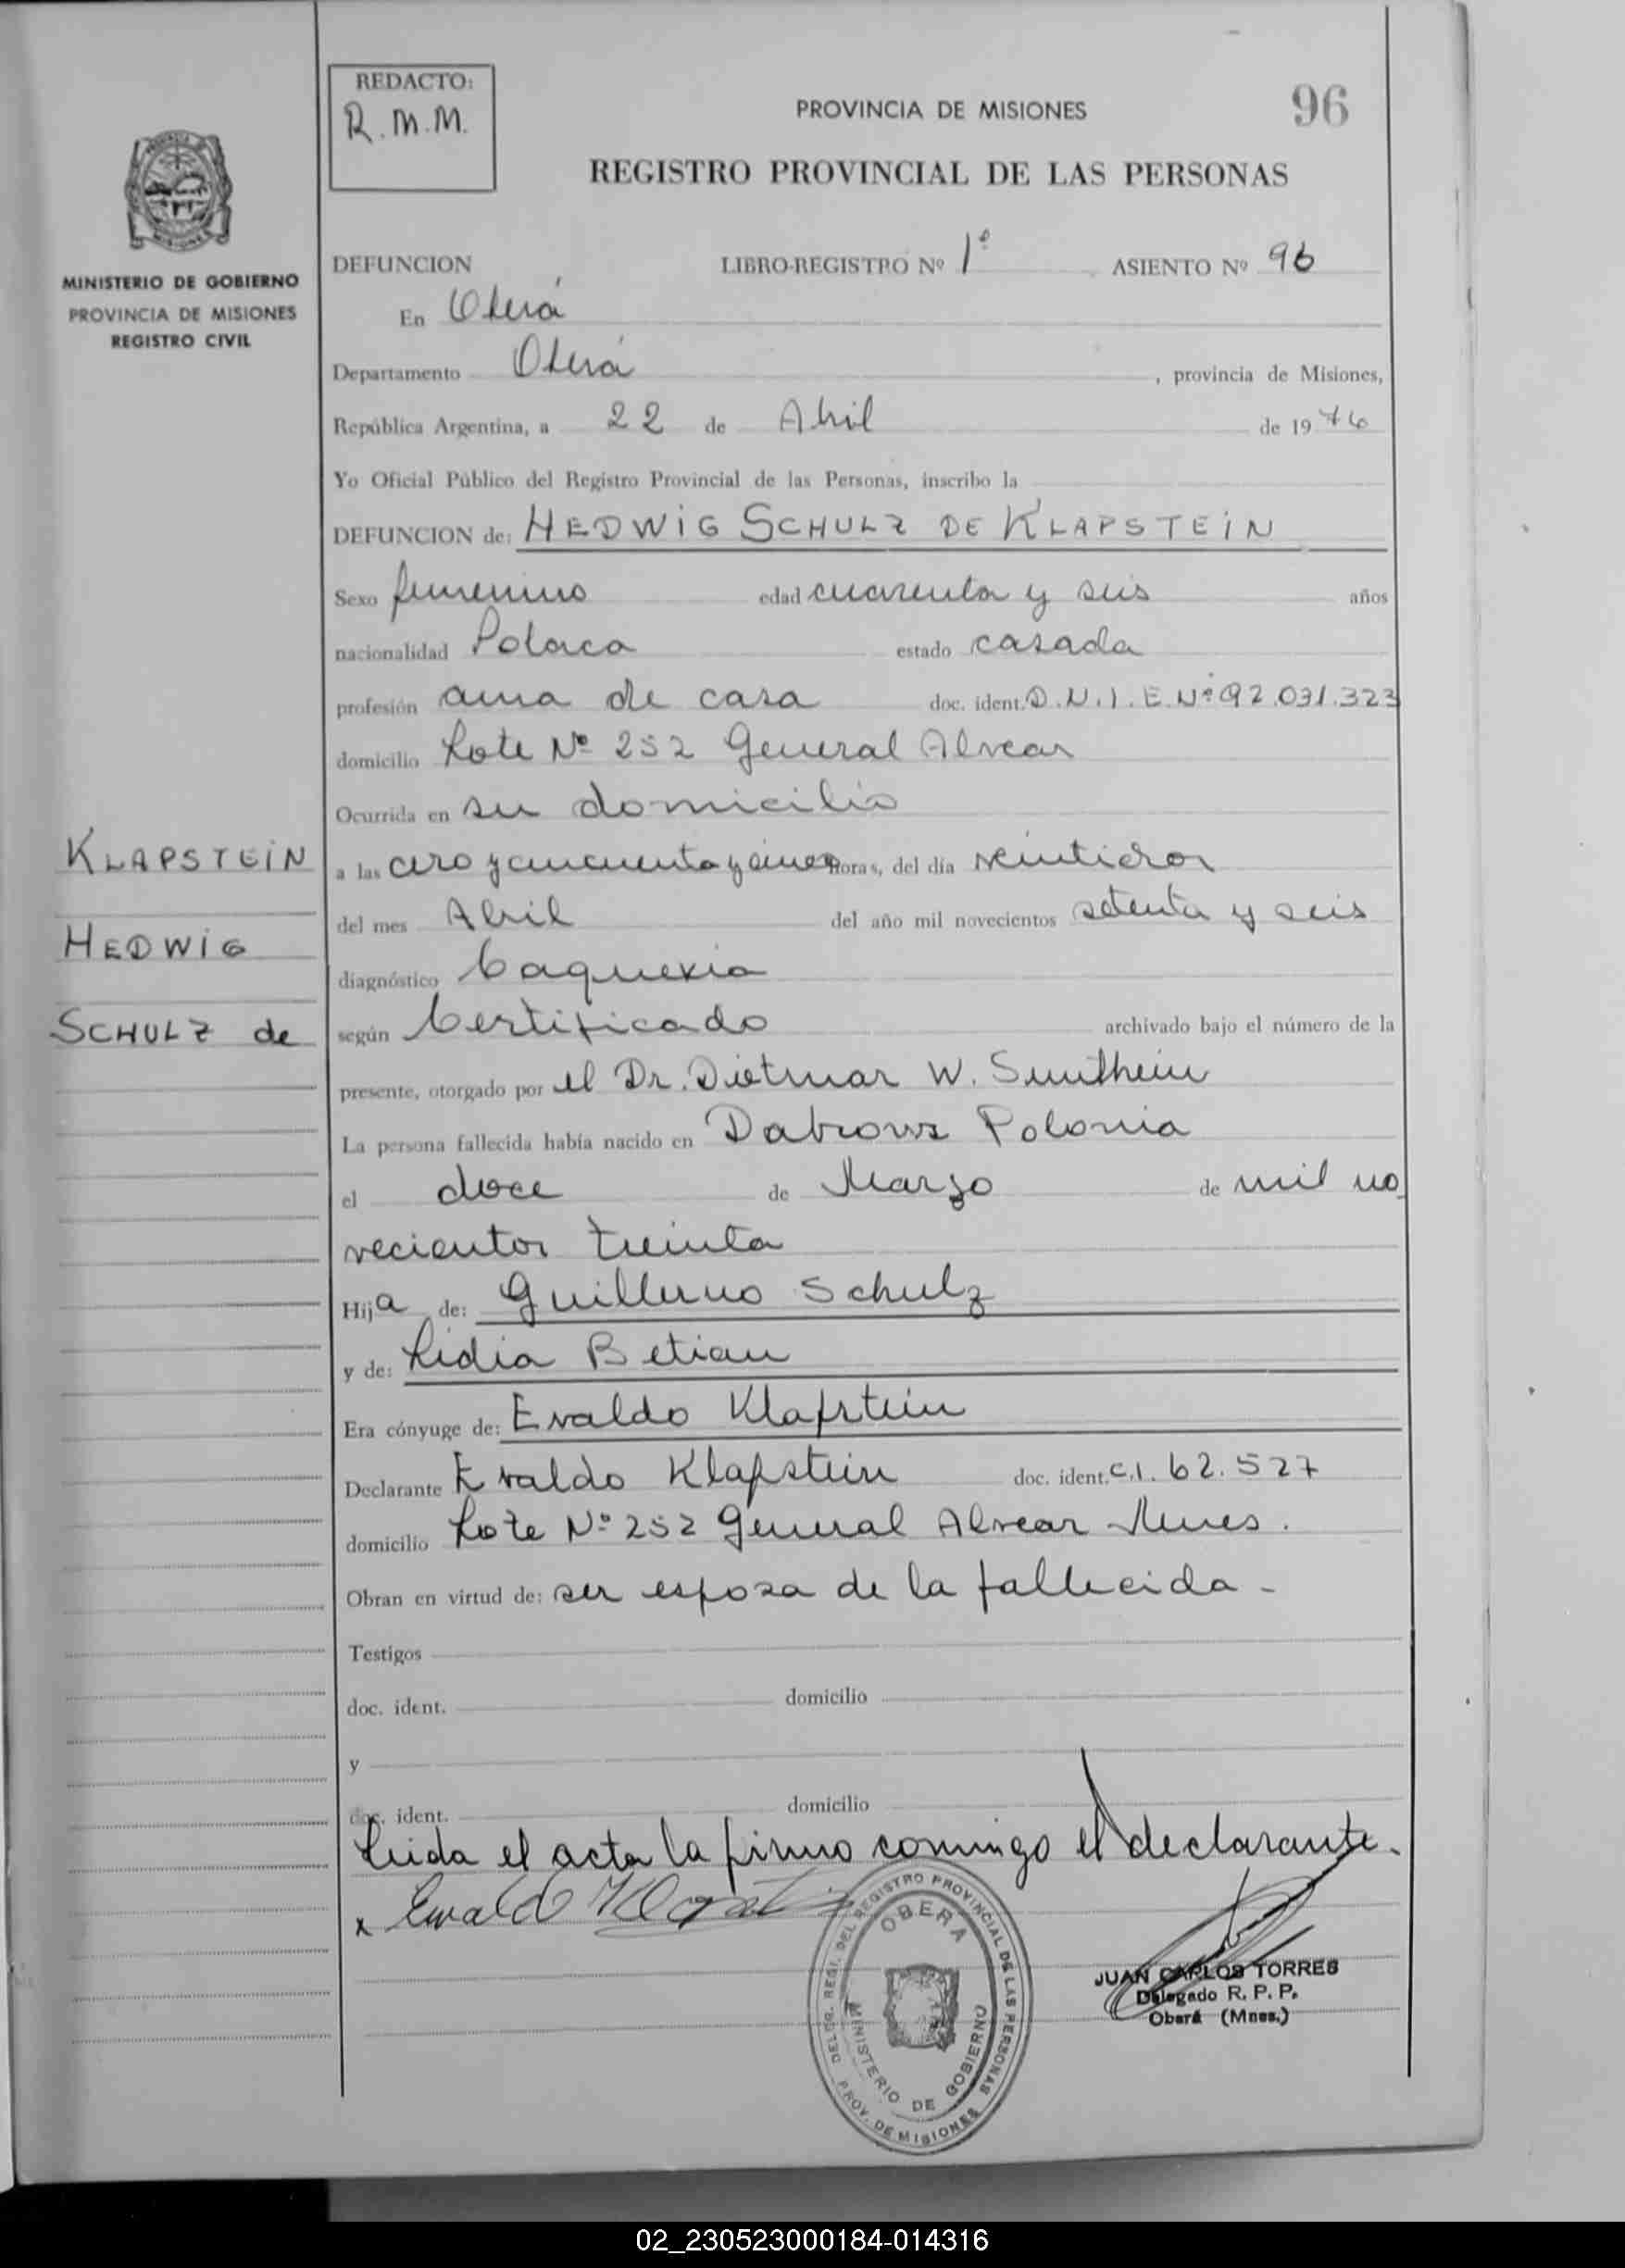 REDACTO:
R.M.M.
PROVINCIA DE MISIONES
96
REGISTRO PROVINCIAL DE LAS PERSONAS
MINISTERIO DE GOBIERNO
PROVINCIA DE MISIONES
REGISTRO CIVIL
DEFUNCION LIBRO-REGISTRO Nº 1º ASIENTO Nº 96
En Oberá
Departamento Oberá, provincia de Misiones,
República Argentina, a 22 de Abril de 1976
Yo Oficial Público del Registro Provincial de las Personas, inscribo la
DEFUNCION de: HEDWIG SCHULZ DE KLAPSTEIN
Sexo femenino edad cuarenta y seis años
nacionalidad Polaca estado casada
profesión ama de casa doc. ident. D.N.I.E Nº 92.031.323
domicilio Lote Nº 252 General Alvear
Ocurrida en su domicilio
KLAPSTEIN
HEDWIG
SCHULZ de
a las cero y cincuenta y cinco horas, del día veintidos
del mes Abril del año mil novecientos setenta y seis
diagnóstico Caquexia
según Certificado archivado bajo el número de la
presente, otorgado por el Dr. Dietmar W.
La persona fallecida había nacido en Polonia
el doce de Marzo de mil no
vecientos treinta
Hija de: Guillermo Schulz
y de: Lidia Betian
Era cónyuge de: Evaldo Klapstein
Declarante Evaldo Klapstein doc. ident. C.I. 62.527
domicilio Lote Nº 252 General Alvear Mnes.
Obran en virtud de: ser esposa de la fallecida -
Testigos
doc. ident. domicilio
y
doc. ident. domicilio
Leida el acta la firmo conmigo el declarante.
x Ewald Klapstein
DELEG. REGI. DEL REGISTRO PROVINCIAL DE LAS PERSONAS
OBERA
MINISTERIO DE GOBIERNO
PROV. DE MISIONES
JUAN CARLOS TORRES
Delegado R. P. P.
Oberá (Mnes.)
02_230523000184-014316